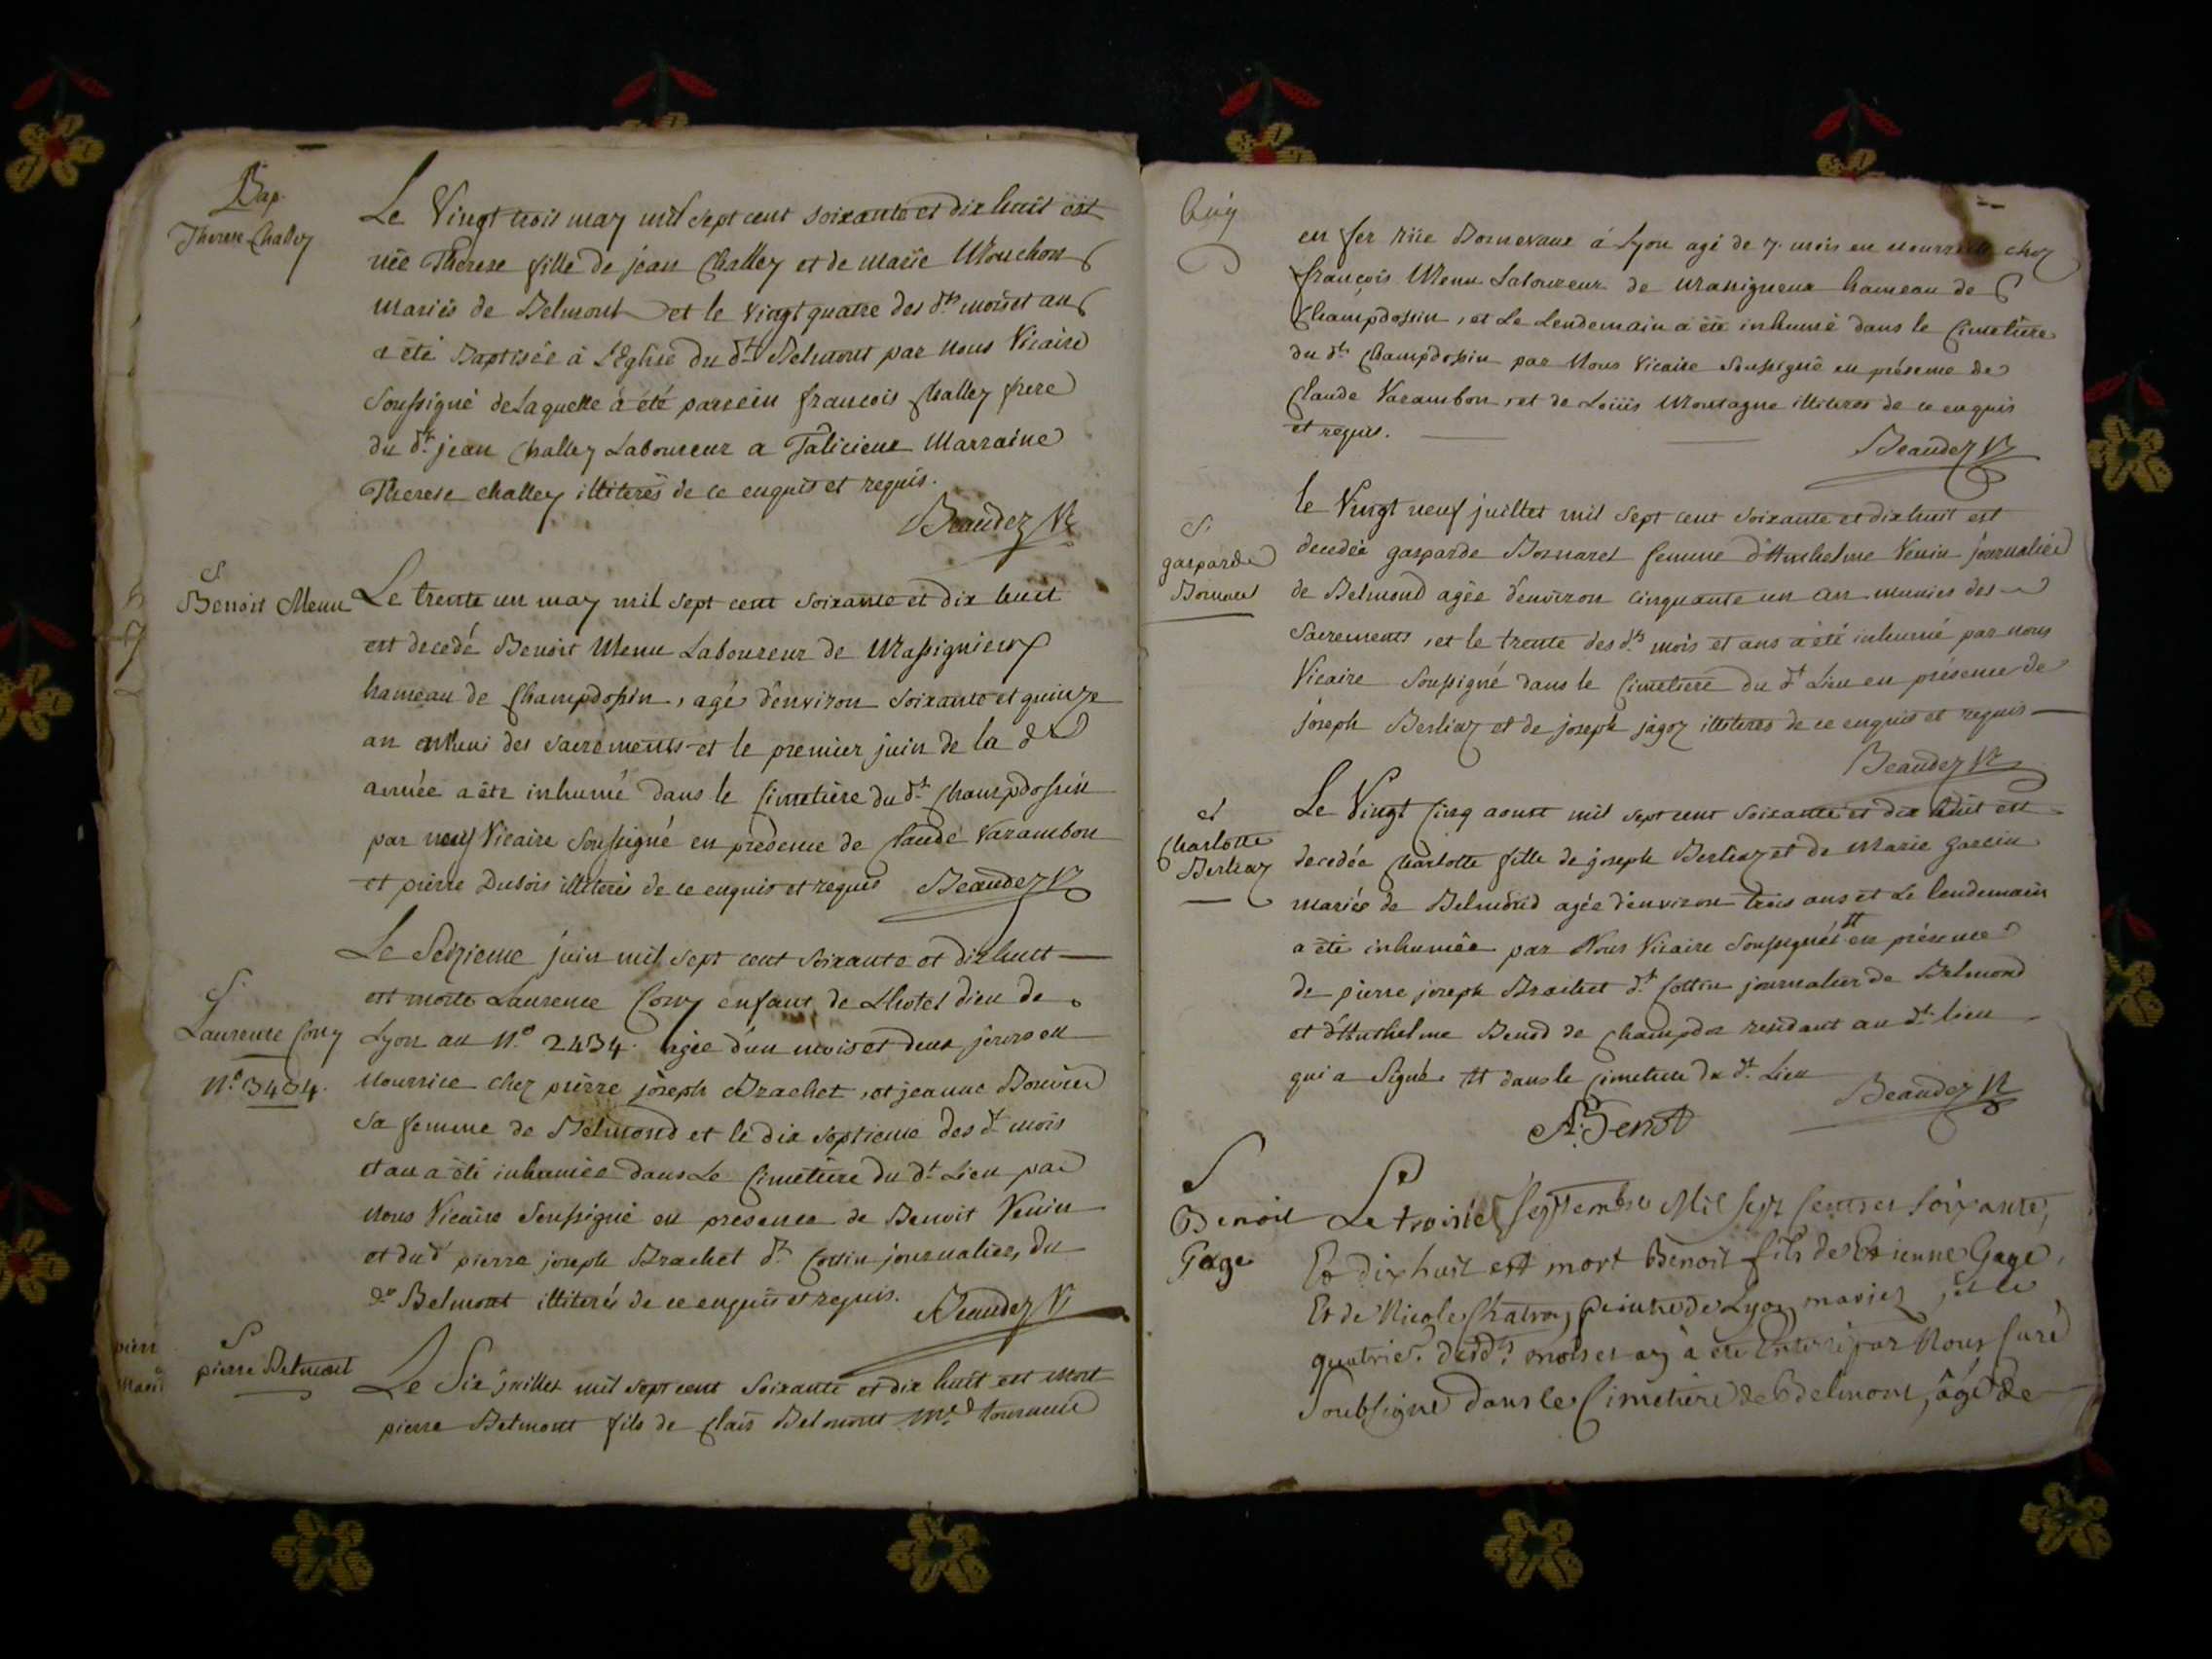 Bap.
Therese Challey
Le Vingt trois may mil sept cent soixante et dix huit est
née Therese fille de jean Challey et de marie Mouchon
mariés de Belmont et le vingt quatre des dts mois et an
a été Baptisée à L'Eglise du dt Belmont par nous Vicaire
soussigné de Laquelle a été parrein francois Challey frere
du dt jean Challey Laboureur a Talicieux Marraine
Therese challey illiterés de ce enquis et requis.
Beaudez Vre
S
Benoit Menu
Le trente un may mil sept cent soixante et dix huit
est decedé Benoit Menu Laboureur de Massignieux
hameau de Champdossin, agé d'environ soixante et quinze
an muni des sacrements et le premier juin de la de
année a été inhumé dans le Cimetière du dt Champdossin
par nous Vicaire soussigné en presence de Claude Varambon
et pierre Dubois illiterés de ce enquis et requis Beaudez Vre
S.
Laurence Cony
N.o 3434.
Le Seizieme juin mil sept cent soixante et dix huit
est morte Laurence Cony enfant de L'hotel dieu de
Lyon au N.o 2434. agée d'un mois et deux jours en
nourrice chez pierre joseph Brachet, et jeanne Bouvier
sa femme de Belmond et le dix septieme des dt mois
et an a été inhumée dans Le Cimetiere du dt Lieu par
nous Vicaire soussigné en presence de Benoit Venin
et du dt pierre joseph Brachet dt Cottin journalier, du
dt Belmont illiterés de ce enquis et requis. Beaudez Vre
S
pierre Belmont
Le Six juillet mil sept cent soixante et dix huit est mort
pierre Belmont fils de Clais Belmont me tourneur
en fer rüe Bonnevaux á Lyon agé de 7. mois en nourrice chez
françois Menu Laboureur de Massignieux hameau de
Champdossin, et Le Lendemain a été inhumé dans le Cimetière
du dt Champdossin par Nous Vicaire Soussigné en présence de
Claude Varambon, et de Loüis Montagne illiteres de ce enquis
et requis.
Beaudez Vre
S.
gasparde
Bornarel
le Vingt neuf juillet mil sept cent soixante et dix huit est
decedée gasparde Bornarel femme d'Anthelme Venin journalier
de Belmond agée d'environ cinquante un an munies des
Sacrements, et le trente des dts mois et ans a été inhumé par nous
Vicaire soussigné dans le Cimetiere du dt Lieu en présence de
joseph Berliaz et de joseph jagoz illiteres de ce enquis et requis
Beaudez Vre
S
Charlotte
Berliaz
Le Vingt Cinq aoust mil sept cent soixante et dix huit est
decedée Charlotte fille de joseph Berliaz et de Marie garcin
mariés de Belmond agée d'environ trois ans et Le lendemain
a été inhumée par Nous Vicaire Soussignés tt en présence
de pierre joseph Brachet dt Cottin journalier de Belmond
et d'Anthelme Benod de Champdor residant au dt lieu
qui a Signé. tt dans le Cimetiere du dt Lieu
Beaudez Vre
A. Benod
S
Benoit
Gage
Le troisie. Septembre Mil Sept Cents et soixante,
Et dix huit est mort Benoit fils de Etienne Gage,
Et de Nicole Chatron, peintre de Lyon, mariez, et le
quatrie. desdts mois et an a été Enterré par Nous Curé
Soubsigné dans le Cimetiere de Belmont, âgé de